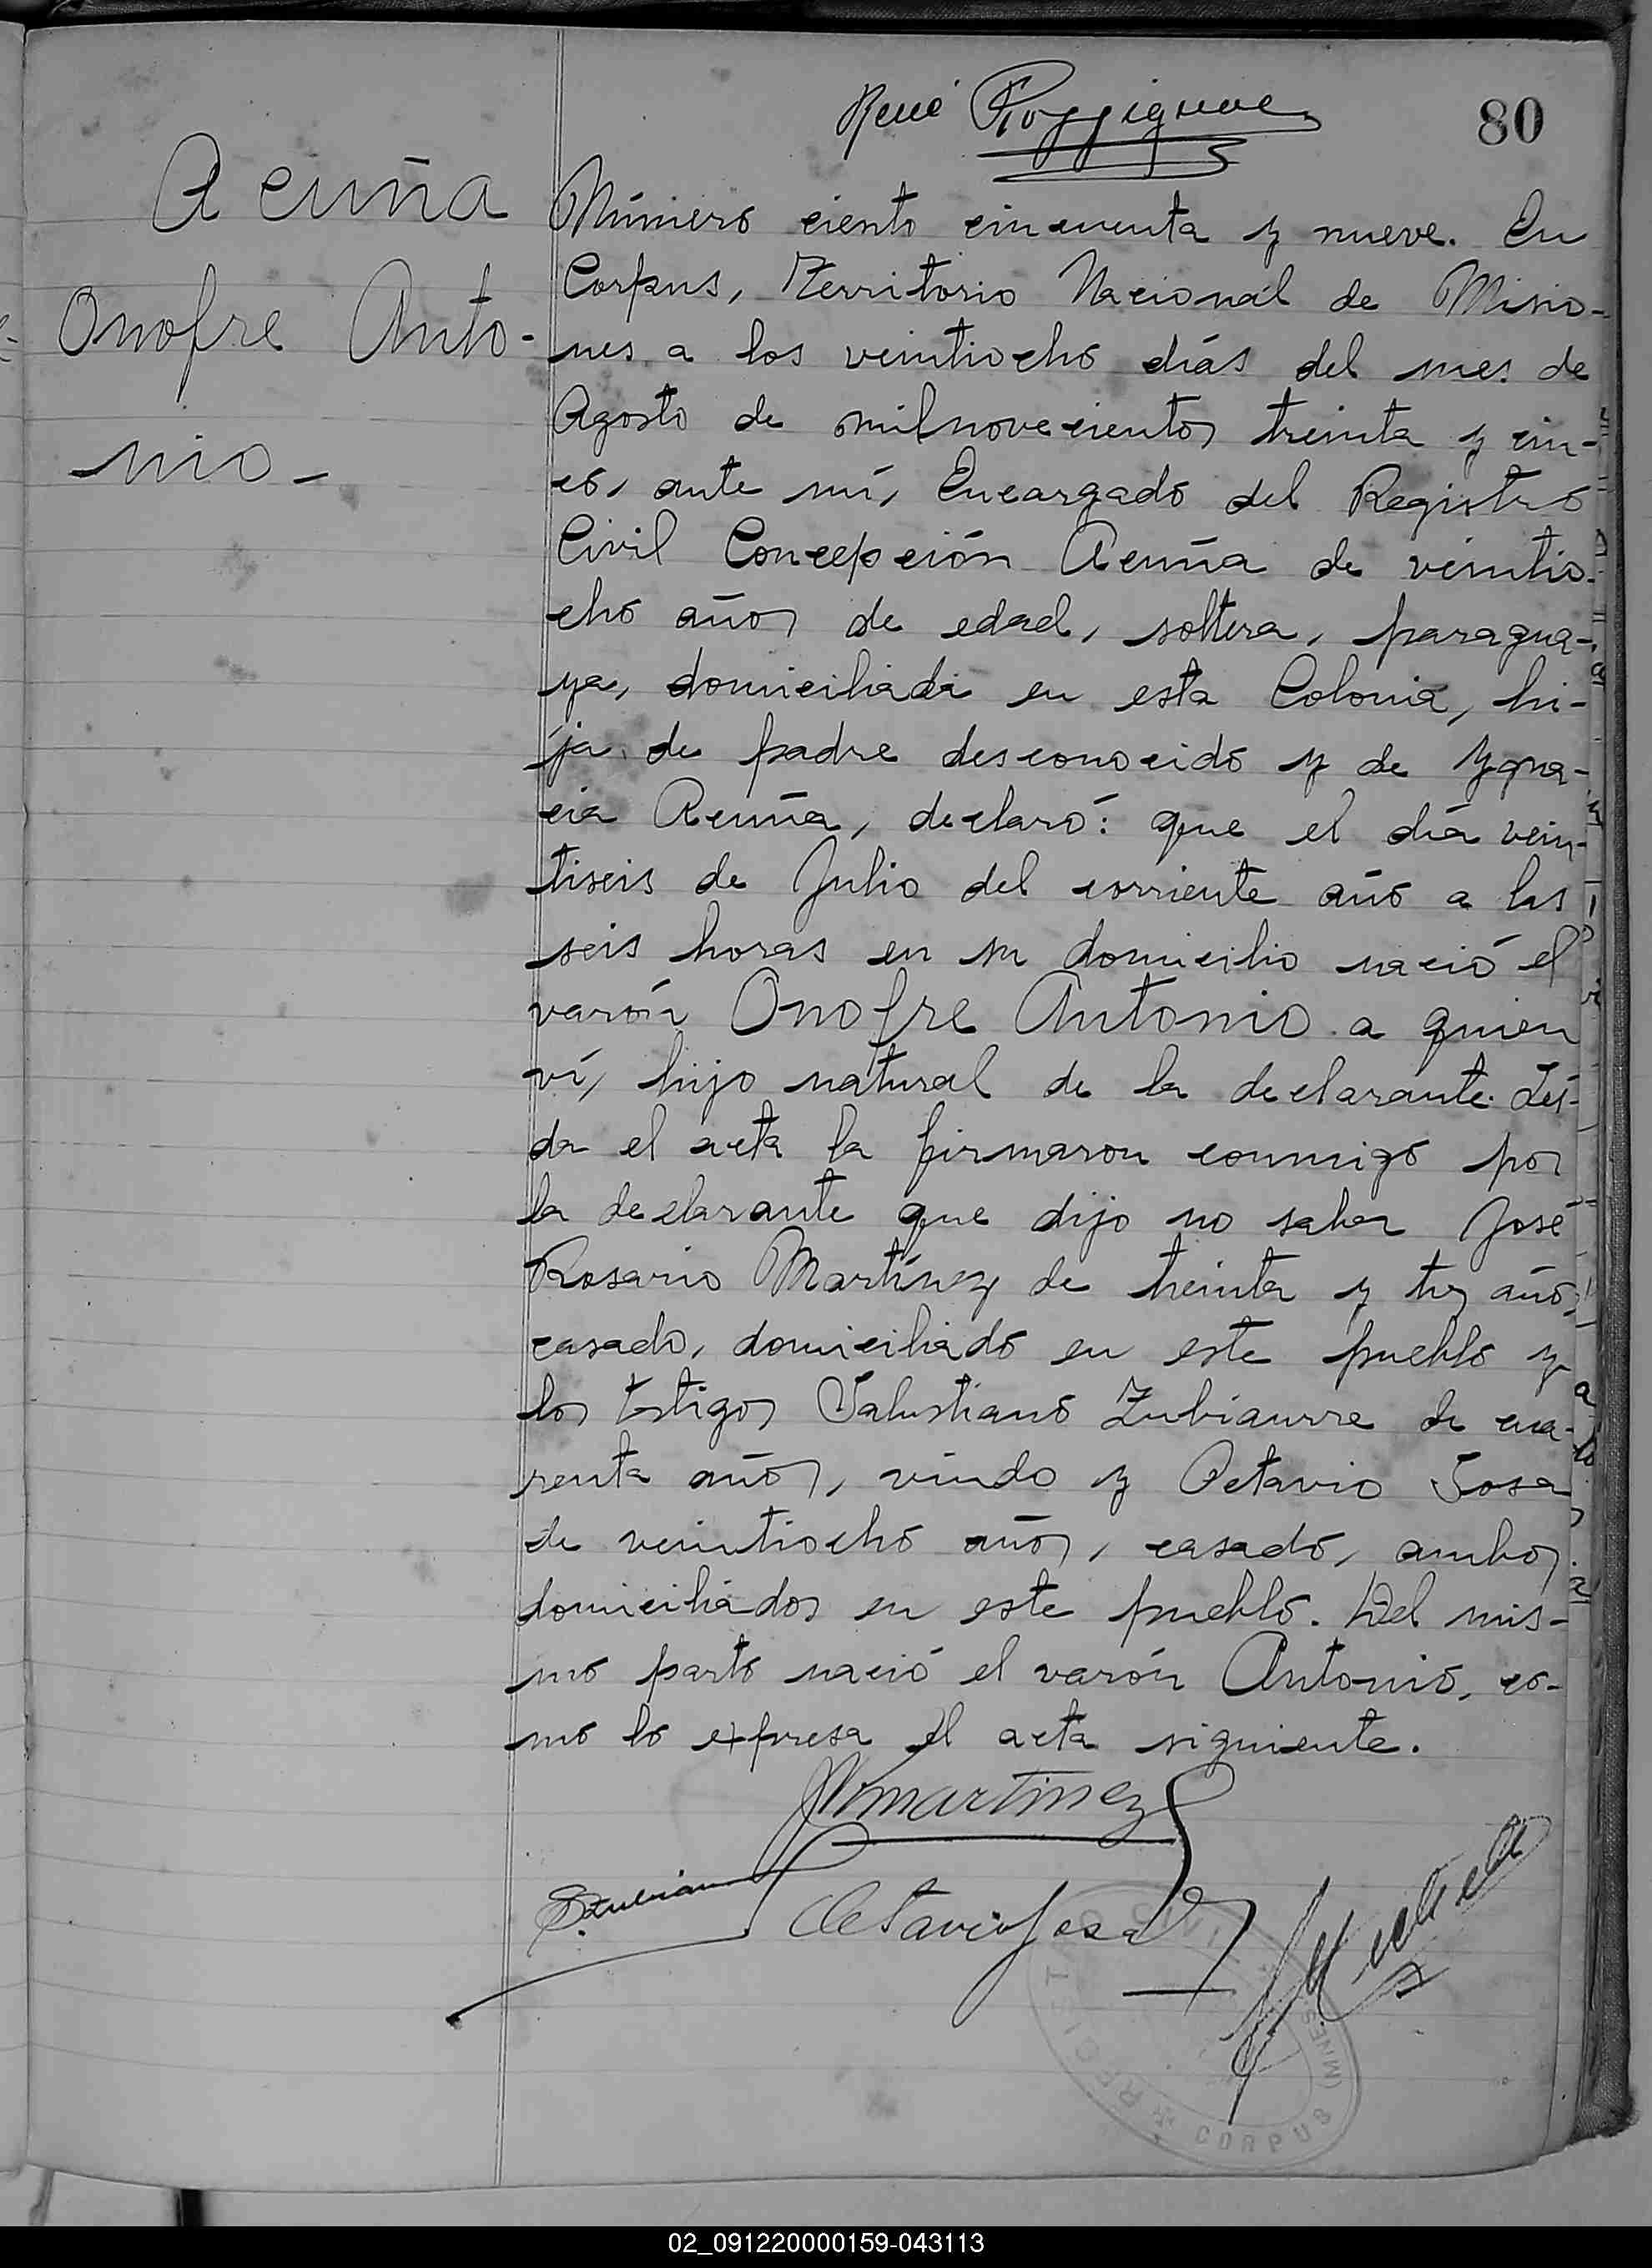 René
80
Acuña
Onofre Anto-
nio-
Número ciento cincuenta y nueve. En
Corpus, Territorio Nacional de Misio-
nes a los veintiocho días del mes de
Agosto de milnovecientos treinta y cin-
co, ante mí, Encargado del Registro
Civil Concepción Acuña de veintio-
cho años de edad, soltera, paragua-
ya, domiciliada en esta Colonia, hi-
ja de padre desconocido y de Ygna-
cia Acuña, declaró: que el día vein-
tiseis de Julio del corriente año a las
seis horas en su domicilio nació el
varón Onofre Antonio a quien
ví, hijo natural de la declarante. Leí-
da el acta la firmaron conmigo por
la declarante que dijo no saber José
Rosario Martínez de treinta y tres años,
casado, domiciliado en este pueblo y
los testigos Salustiano Zubiaurre de cua-
renta años, viudo y Octavio Sosa
de veintiocho años, casado, ambos
domiciliados en este pueblo. Del mis-
mo parto nació el varón Antonio, co-
mo lo expresa el acta siguiente.
JRMartinez
SZubiaurre
Octavio Sosa
CORPUS (MNES
02_091220000159-043113